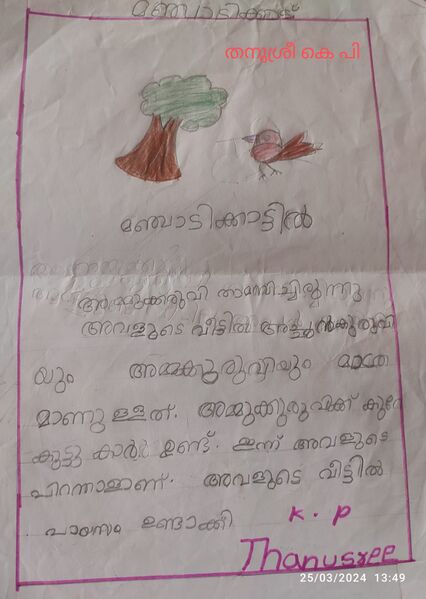 മഞ്ചാടിക്കാട്
തനുശ്രീ കെ പി
മഞ്ചാടിക്കാട്ടിൽ
അമ്മുക്കുരുവി താമസിച്ചിരുന്നു
അവളുടെ വീട്ടിൽ അച്ഛൻകുരുവി
യും അമ്മക്കുരുവിയും മാത്ര
മാണുള്ളത്. അമ്മുക്കുരുവിക്ക് കുറേ
കൂട്ടുകാർ ഉണ്ട്. ഇന്ന് അവളുടെ
പിറന്നാളാണ്. അവളുടെ വീട്ടിൽ
പായസം ഉണ്ടാക്കി K. P
Thanusree
25/03/2024 13:49